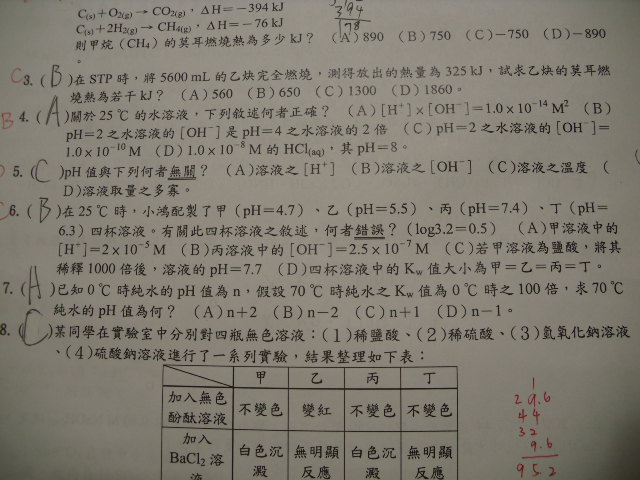 C(s)+O2(g)→CO2(g),ΔH=−394 kJ
394
C(s)+2H2(g)→CH4(g),ΔH=−76 kJ
178
則甲烷(CH4)的莫耳燃燒熱為多少 kJ? (A)890 (B)750 (C)−750 (D)−890
。
C 3. (B)在 STP 時,將 5600 mL 的乙炔完全燃燒,測得放出的熱量為 325 kJ,試求乙炔的莫耳燃
燒熱為若干 kJ? (A)560 (B)650 (C)1300 (D)1860。
B 4. (A)關於 25 ℃ 的水溶液,下列敘述何者正確? (A)[H⁺]×[OH⁻]=1.0×10⁻¹⁴ M² (B)
pH=2 之水溶液的 [OH⁻] 是 pH=4 之水溶液的 2 倍 (C)pH=2 之水溶液的 [OH⁻]=
1.0×10⁻¹⁰ M (D)1.0×10⁻⁸ M 的 HCl(aq),其 pH=8。
5. (C)pH 值與下列何者無關? (A)溶液之 [H⁺] (B)溶液之 [OH⁻] (C)溶液之溫度 (
D)溶液取量之多寡。
C 6. (B)在 25 ℃ 時,小鴻配製了甲(pH=4.7)、乙(pH=5.5)、丙(pH=7.4)、丁(pH=
6.3)四杯溶液。有關此四杯溶液之敘述,何者錯誤?(log3.2=0.5) (A)甲溶液中的
[H⁺]=2×10⁻⁵ M (B)丙溶液中的 [OH⁻]=2.5×10⁻⁷ M (C)若甲溶液為鹽酸,將其
稀釋 1000 倍後,溶液的 pH=7.7 (D)四杯溶液中的 Kw 值大小為甲=乙=丙=丁。
7. (A)已知 0 ℃ 時純水的 pH 值為 n,假設 70 ℃ 時純水之 Kw 值為 0 ℃ 時之 100 倍,求 70 ℃
純水的 pH 值為何? (A)n+2 (B)n−2 (C)n+1 (D)n−1。
8. (C)某同學在實驗室中分別對四瓶無色溶液:(1)稀鹽酸、(2)稀硫酸、(3)氫氧化鈉溶液
、(4)硫酸鈉溶液進行了一系列實驗,結果整理如下表:
甲 乙 丙 丁
加入無色
酚酞溶液 不變色 變紅 不變色 不變色
加入
BaCl2 溶
液 白色沉
澱 無明顯
反應 白色沉
澱 無明顯
反應
1
29.6
44
32
9.6
95.2